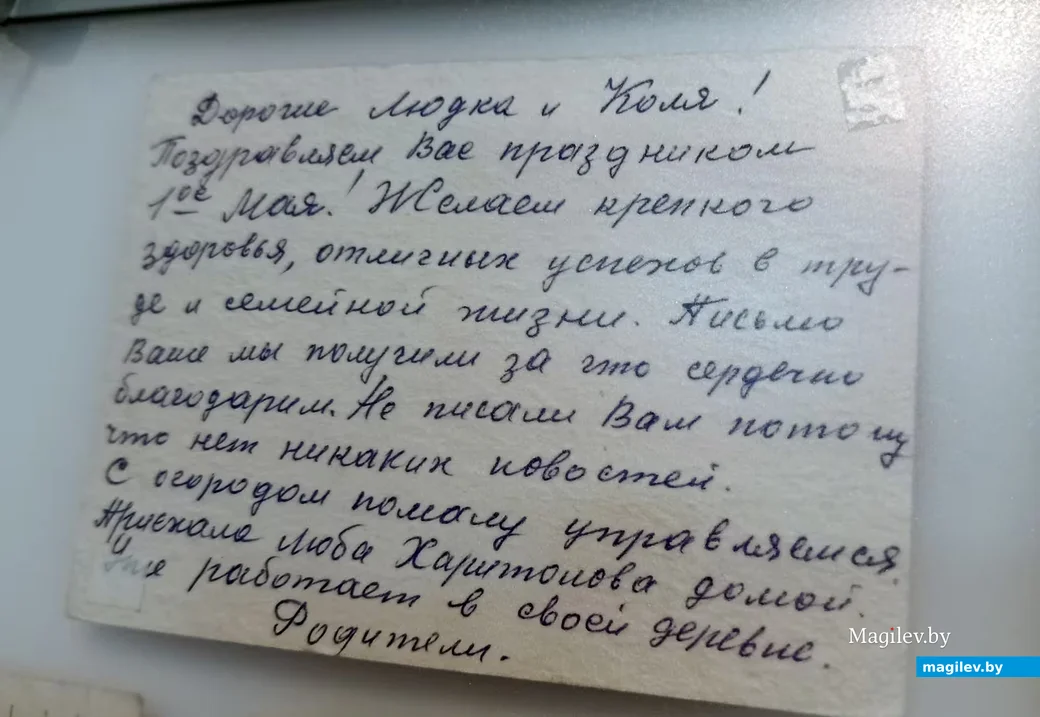 Дорогие Людка и Коля!
Поздравляем Вас праздником
1ое Мая! Желаем крепкого
здоровья, отличных успехов в тру-
де и семейной жизни. Письмо
Ваше мы получили за что сердечно
благодарим. Не писали Вам потому
что нет никаких новостей.
С огородом помалу управляемся.
Приехала Люба Харитонова домой.
работает в своей деревне.
Родители.
Magilev.by
magilev.by